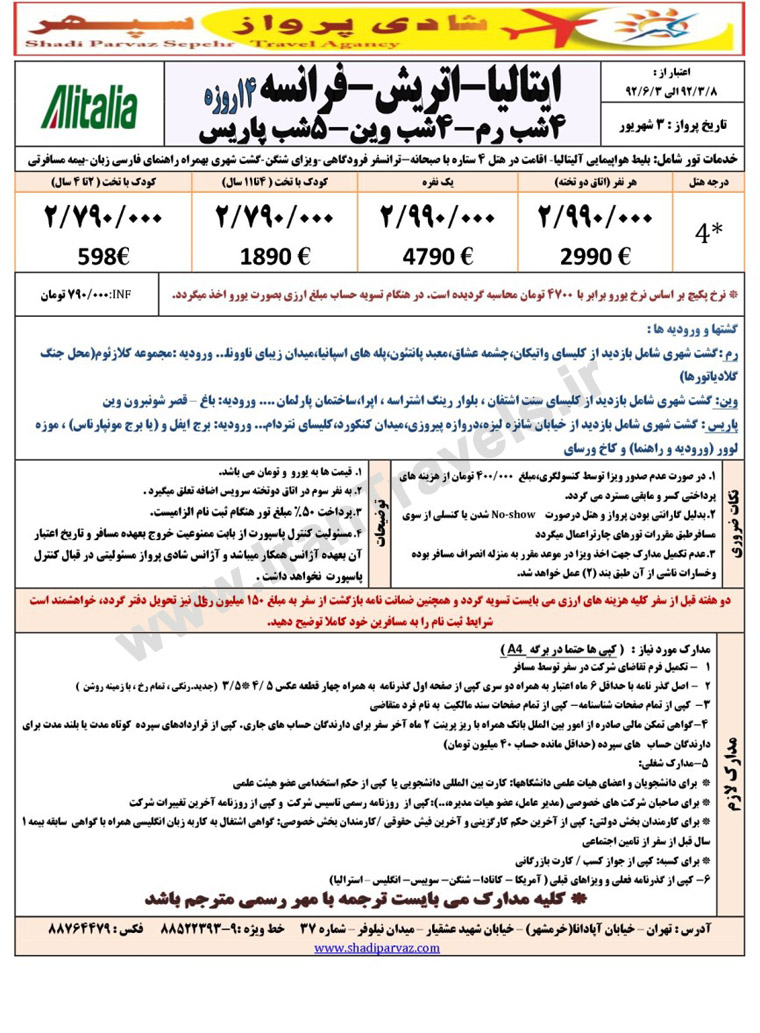 شادی پرواز سپهر
Shadi Parvaz Sepehr Travel Agancy
Alitalia
ایتالیا-اتریش-فرانسه ۱۴روزه
۴شب رم-۴شب وین-۵شب پاریس
اعتبار از :
۹۲/۳/۸ الی ۹۲/۶/۳
تاریخ پرواز : ۳ شهریور
خدمات تور شامل: بلیط هواپیمایی آلیتالیا- اقامت در هتل ۴ ستاره با صبحانه-ترانسفر فرودگاهی -ویزای شنگن-گشت شهری بهمراه راهنمای فارسی زبان-بیمه مسافرتی
درجه هتل هر نفر (اتاق دو تخته) یک نفره کودک با تخت ( ۴تا۱۱ سال) کودک با تخت ( ۲تا ۴ سال)
4* ۲/۹۹۰/۰۰۰ ۲/۹۹۰/۰۰۰ ۲/۷۹۰/۰۰۰ ۲/۷۹۰/۰۰۰
2990 € 4790 € 1890 € 598€
* نرخ پکیج بر اساس نرخ یورو برابر با ۴۷۰۰ تومان محاسبه گردیده است. در هنگام تسویه حساب مبلغ ارزی بصورت یورو اخذ میگردد.
INF:۷۹۰/۰۰۰ تومان
گشتها و ورودیه ها :
رم :گشت شهری شامل بازدید از کلیسای واتیکان،چشمه عشاق،معبد پانتئون،پله های اسپانیا،میدان زیبای ناوونا.. ورودیه :مجموعه کلازئوم(محل جنگ
گلادیاتورها)
وین: گشت شهری شامل بازدید از کلیسای سنت اشتفان ، بلوار رینگ اشتراسه ، اپرا،ساختمان پارلمان .... ورودیه: باغ - قصر شونبرون وین
پاریس : گشت شهری شامل بازدید از خیابان شانزه لیزه،دروازه پیروزی،میدان کنکورد،کلیسای نتردام... ورودیه: برج ایفل و (یا برج مونپارناس) ، موزه
لوور (ورودیه و راهنما) و کاخ ورسای
نکات ضروری
۱. در صورت عدم صدور ویزا توسط کنسولگری،مبلغ ۴۰۰/۰۰۰ تومان از هزینه های
پرداختی کسر و مابقی مسترد می گردد.
۲.بدلیل گارانتی بودن پرواز و هتل درصورت No-show شدن یا کنسلی از سوی
مسافرطبق مقررات تورهای چارتراعمال میگردد
۳.عدم تکمیل مدارک جهت اخذ ویزا در موعد مقرر به منزله انصراف مسافر بوده
وخسارات ناشی از آن طبق بند (۲) عمل خواهد شد.
توضیحات
۱. قیمت ها به یورو و تومان می باشد.
۲. به نفر سوم در اتاق دوتخته سرویس اضافه تعلق میگیرد .
۳.پرداخت ۵۰٪ مبلغ تور هنگام ثبت نام الزامیست.
۴. مسئولیت کنترل پاسپورت از بابت ممنوعیت خروج بعهده مسافر و تاریخ اعتبار
آن بعهده آژانس همکار میباشد و آژانس شادی پرواز مسئولیتی در قبال کنترل
پاسپورت نخواهد داشت .
دو هفته قبل از سفر کلیه هزینه های ارزی می بایست تسویه گردد و همچنین ضمانت نامه بازگشت از سفر به مبلغ ۱۵۰ میلیون ریال نیز تحویل دفتر گردد، خواهشمند است
شرایط ثبت نام را به مسافرین خود کاملا توضیح دهید.
مدارک لازم
مدارک مورد نیاز : ( کپی ها حتما در برگه A4 )
۱ - تکمیل فرم تقاضای شرکت در سفر توسط مسافر
۲ - اصل گذر نامه با حداقل ۶ ماه اعتبار به همراه دو سری کپی از صفحه اول گذرنامه به همراه چهار قطعه عکس ۴/۵ *۳/۵ (جدید.رنگی ، تمام رخ ، با زمینه روشن )
۳- کپی از تمام صفحات شناسنامه- کپی از تمام صفحات سند مالکیت به نام فرد متقاضی
۴-گواهی تمکن مالی صادره از امور بین الملل بانک همراه با ریز پرینت ۲ ماه آخر سفر برای دارندگان حساب های جاری. کپی از قراردادهای سپرده کوتاه مدت یا بلند مدت برای
دارندگان حساب های سپرده (حداقل مانده حساب ۴۰ میلیون تومان)
۵-مدارک شغلی:
* برای دانشجویان و اعضای هیات علمی دانشگاهها: کارت بین المللی دانشجویی یا کپی از حکم استخدامی عضو هیئت علمی
* برای صاحبان شرکت های خصوصی (مدیر عامل، عضو هیات مدیره،..):کپی از روزنامه رسمی تاسیس شرکت و کپی از روزنامه آخرین تغییرات شرکت
* برای کارمندان بخش دولتی: کپی از آخرین حکم کارگزینی و آخرین فیش حقوقی /کارمندان بخش خصوصی: گواهی اشتغال به کاربه زبان انگلیسی همراه با گواهی سابقه بیمه ۱
سال قبل از سفر از تامین اجتماعی
* برای کسبه: کپی از جواز کسب / کارت بازرگانی
۶- کپی از گذرنامه فعلی و ویزاهای قبلی ( آمریکا - کانادا- شنگن- سوییس- انگلیس - استرالیا)
* کلیه مدارک می بایست ترجمه با مهر رسمی مترجم باشد
آدرس : تهران - خیابان آپادانا(خرمشهر) - خیابان شهید عشقیار - میدان نیلوفر - شماره ۳۷ خط ویژه :۹-۸۸۵۲۲۳۹۳ فکس : ۸۸۷۶۴۴۷۹
www.shadiparvaz.com
www.IranTravels.ir